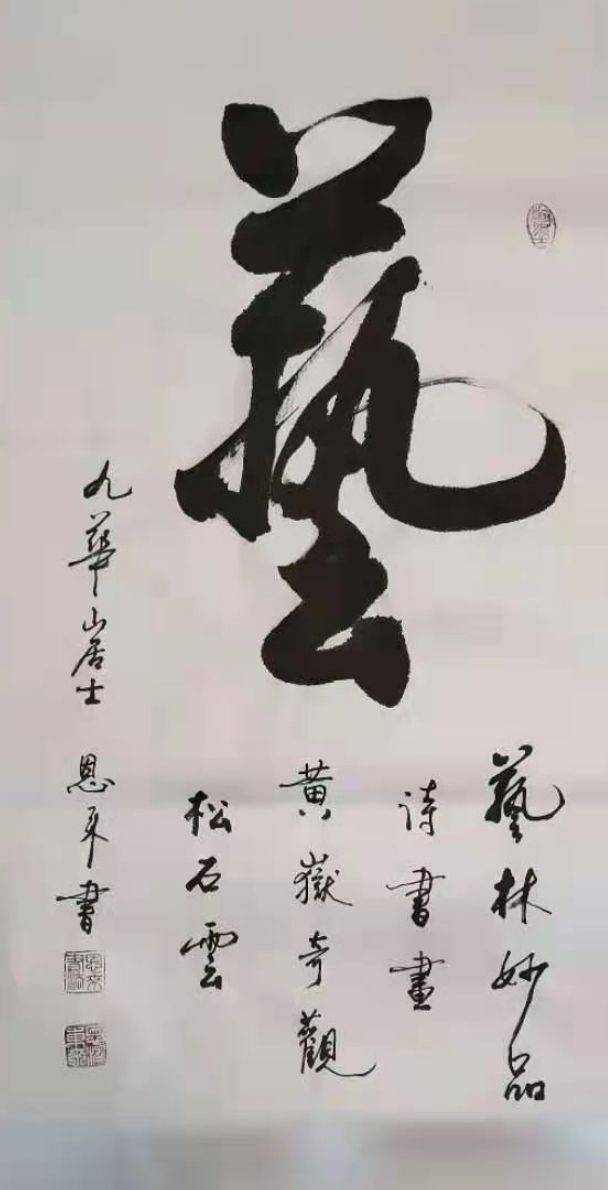 藝
藝林妙品
诗書畫
黄嶽奇觀
松石雲
九華山居士 恩來書